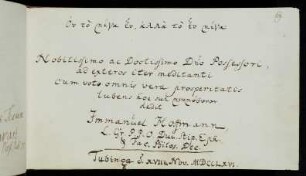 Οὐ τὸ μέγα εὖ, ἀλλὰ τὸ εὖ μέγα
Nobilissimo ac Doctissimo Dno Possessori,
ad exteros iter meditanti
cum voto omnis verae prosperitatis
lubens hoc sui
dedit
Immanuel Hoffmann
L. Gr. P. P. O. Duc. Stip. Eph.
h. Fac. Philos. Dec.
Tubingae d. XVIII Nov. MDCCLXVI.